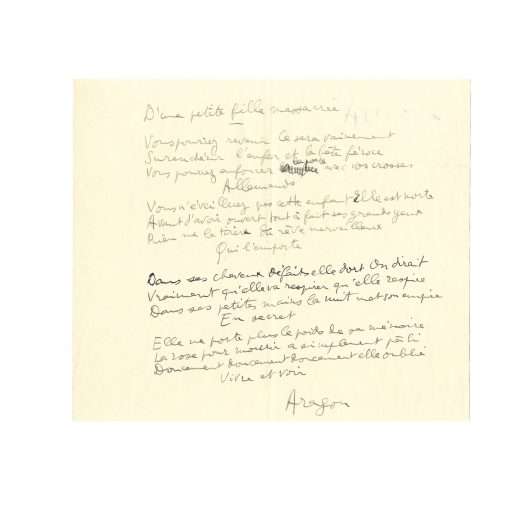 D'une petite fille massacrée
Vous pourrez revenir Ce sera vainement
l'enfer et la bête féroce
Vous pouvez enfoncer la porte avec vos crosses
Allemands
Vous n'éveillerez pas cette enfant Elle est morte
Avant d'avoir ouvert tout à fait ses grands yeux
Rien ne la rêve merveilleux
Qui l'emporte
Dans ses cheveux défaits elle dort On dirait
Vraiment qu'elle va respirer qu'elle respire
Dans ses petites mains la nuit met son empire
En secret
Elle ne porte plus le poids de sa mémoire
La rose pour mourir a simplement pâli
Doucement doucement doucement elle oublie
Vivre et voir
Aragon